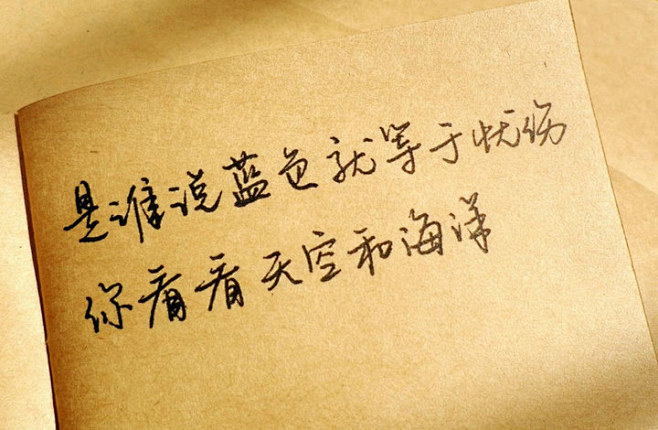 是谁说蓝色就等于忧伤
你看看天空和海洋